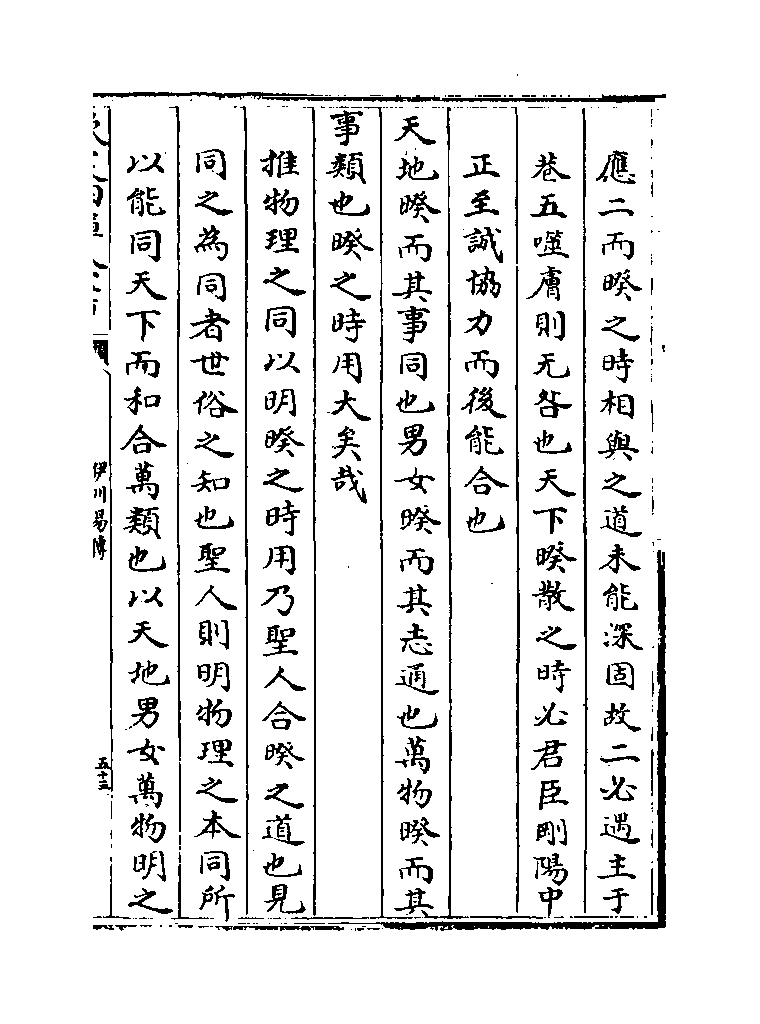 應二而暌之時相與之道未能深固故二必遇主于
巷五噬膚則无咎也天下暌散之時必君臣剛陽中
正至誠協力而後能合也
天地暌而其事同也男女暌而其志通也萬物暌而其
事類也暌之時用大矣哉
推物理之同以明暌之時用乃聖人合暌之道也見
同之為同者世俗之知也聖人則明物理之本同所
以能同天下而和合萬類也以天地男女萬物明之
伊川易傳
五十三